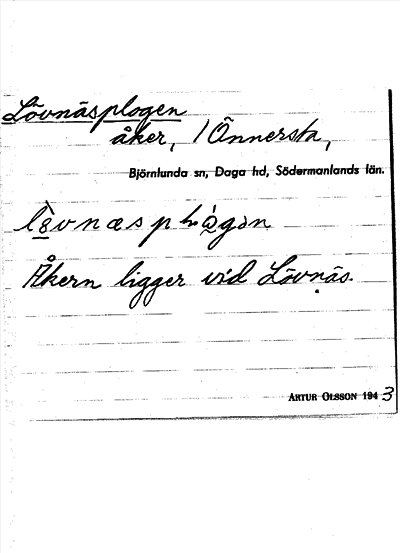 Lövnäsplogen
åker, / Önnersta,
Björnlunda sn, Daga hd, Södermanlands län.
Åkern ligger vid Lövnäs.
ARTUR OLSSON 1943